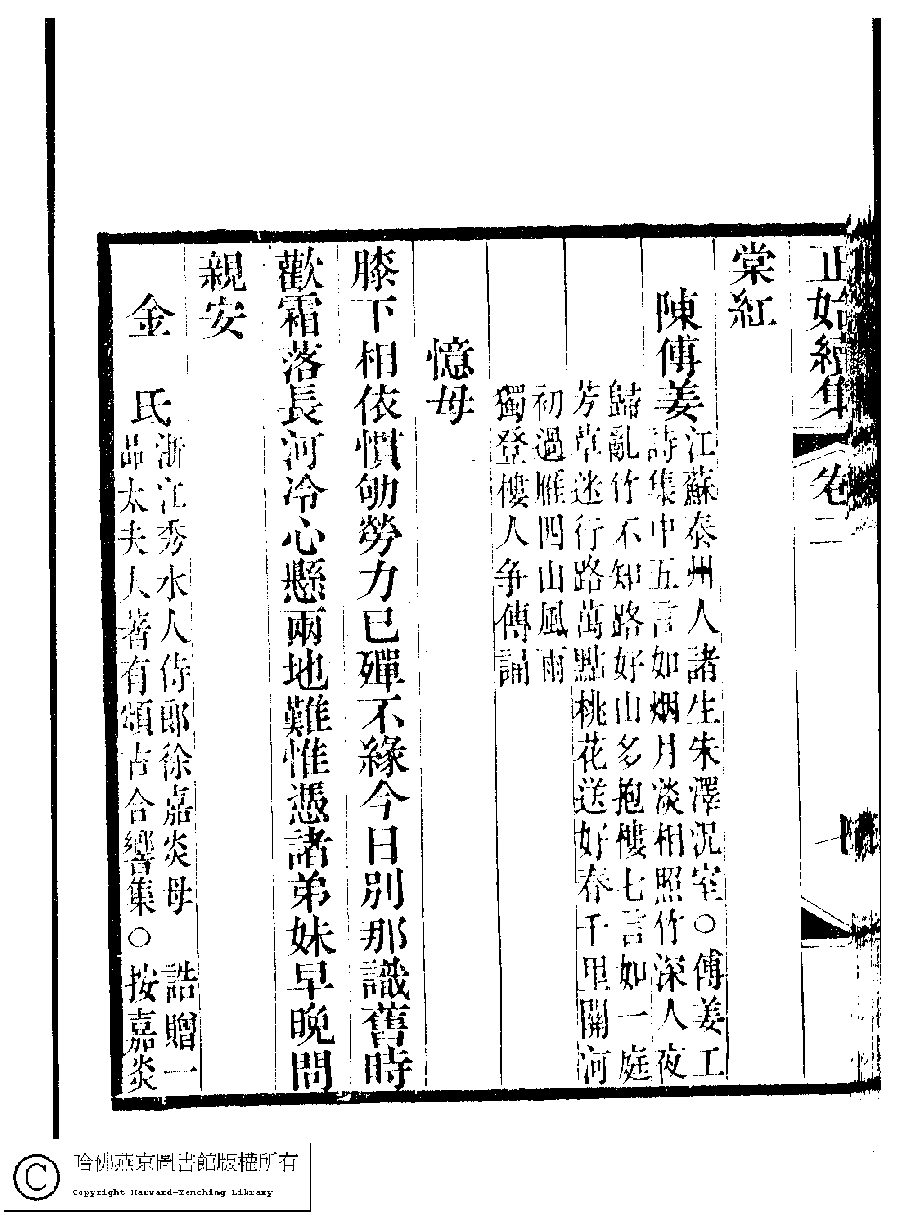 正始續集 卷二
棠紅
陳傅姜
江蘇泰州人諸生朱澤況室○傅姜工
詩集中五言如烟月淡相照竹深人夜
歸亂竹不知路好山多抱樓七言如一庭
芳草迷行路萬點桃花送好春千里關河
初過雁四山風雨
獨登樓人爭傳誦
憶母
膝下相依慣劬勞力已殫不緣今日別那識舊時
歡霜落長河冷心懸兩地難惟憑諸弟妹早晚問
親安
金 氏
浙江秀水人侍郎徐嘉炎母 誥贈一
品太夫人著有頌古合響集○按嘉炎
哈佛燕京圖書館版權所有
Copyright Harvard-Yenching Library